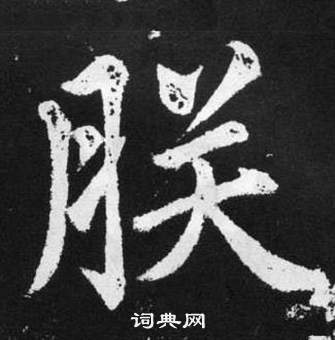 朕
词典网